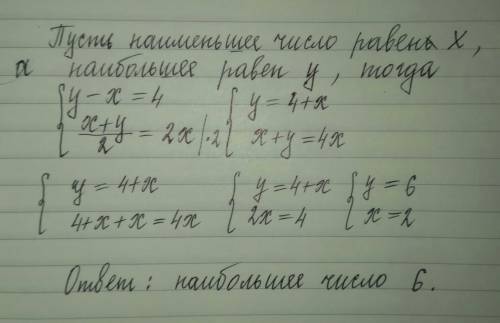 Пусть наименьшее число равень x,
а наибольшее равен y, тогда
{y - x = 4 {y = 4+x
{x+y/2 = 2x |·2 {x+y = 4x
{y = 4+x {y = 4+x {y = 6
{4+x+x = 4x {2x = 4 {x = 2
Ответ: наибольшее число 6.